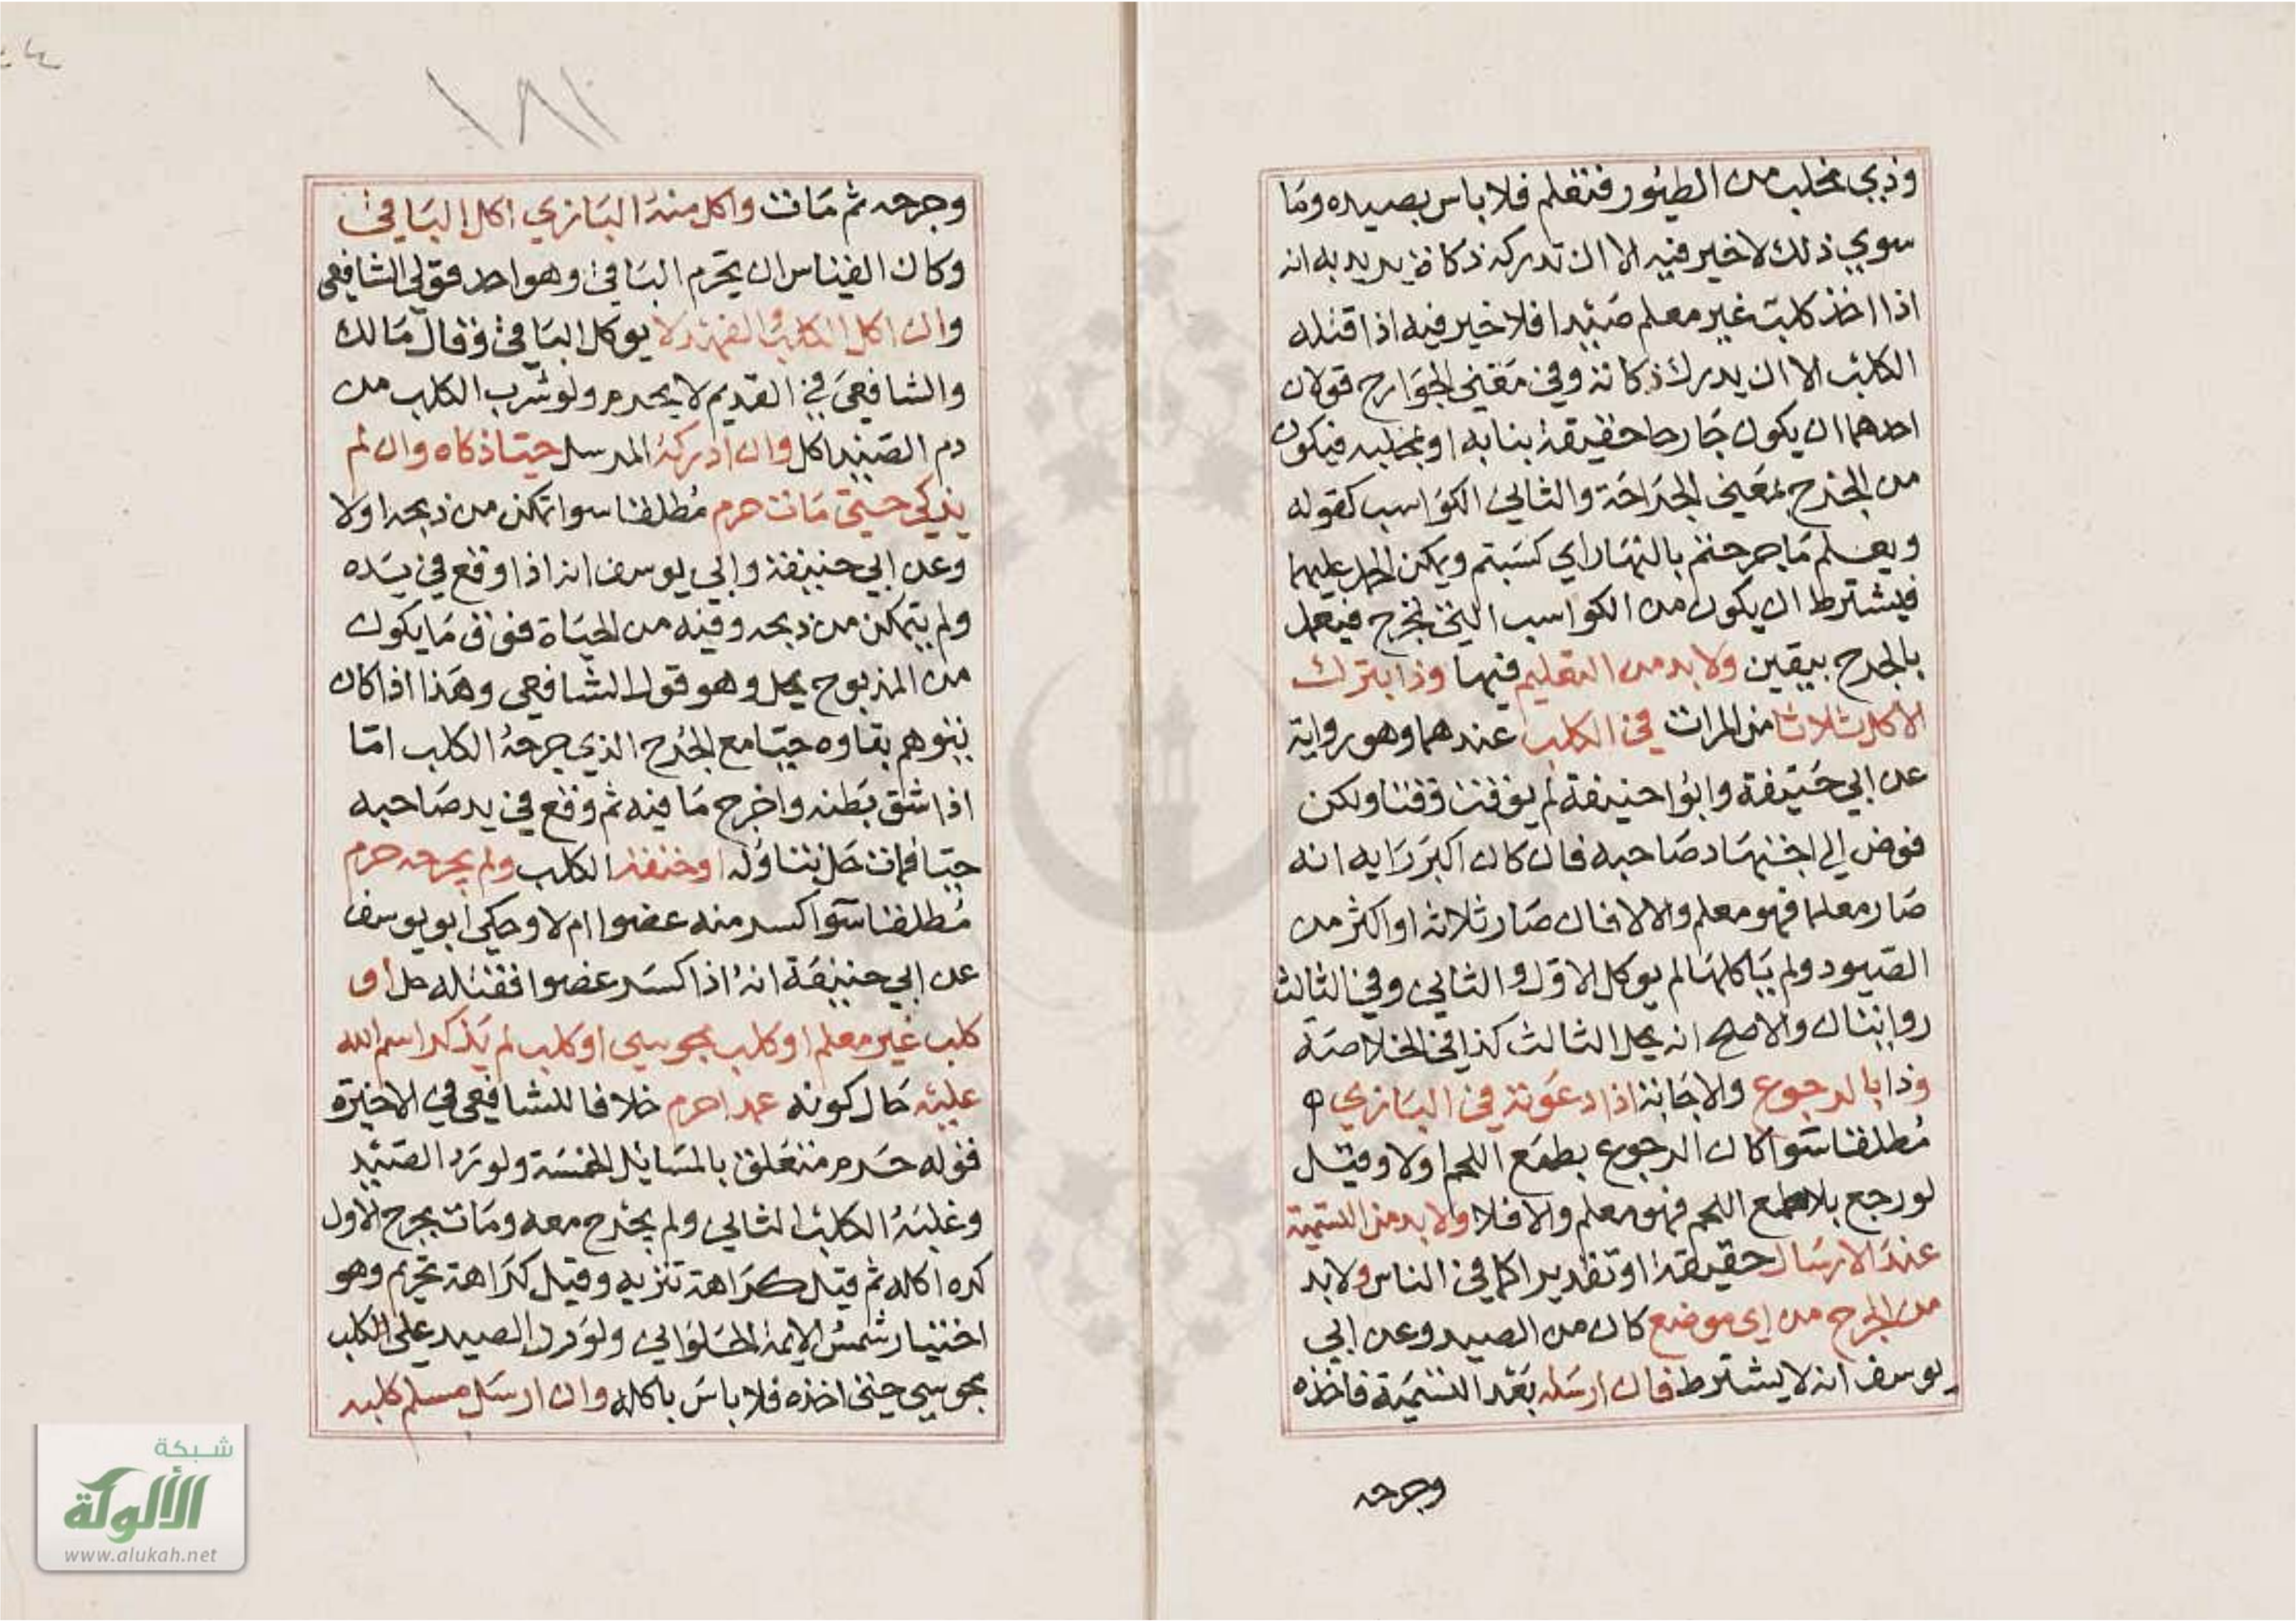 وذي مخلب من الطيور فتعلم فلا باس بصيده وما
سوي ذلك لا خير فيه الا ان تدركه ذكاة يريد به انه
اذا اخذ كلب غير معلم صيدا فلا خير فيه اذا قتله
الكلب الا ان يدرك ذكاته وفي معني الجوارح قولان
احدهما ان يكون جارحا حقيقة بنابه او بمخلبه فيكون
من الجرح بمعني الجراحة والثاني الكواسب كقوله
ويعلم ما جرحتم بالنهار اي كسبتم ويمكن الحمل عليهما
فيشترط ان يكون من الكواسب التي تجرح فيعمل
بالجرح بيقين ولا بد من التعليم فيها وذا بترك
الاكل ثلاثا من المرات في الكلب عندهما وهو رواية
عن ابي حنيفة وابوا حنيفة لم يوقت وقتا ولكن
فوض الي اجتهاد صاحبه فان كان اكبر رايه انه
صار معلما فهو معلم والا لا فان صار ثلاثه او اكثر من
الصيود ولم ياكلها لم يوكل الاول والثاني وفي الثالث
روايتان والاصح انه يحل الثالث كذا في الخلاصة
وذا بالرجوع والاجابة اذا دعوته في البازي
مطلقا سوا كان الرجوع بطمع اللحم اولا وقيل
لو رجع بلا طمع اللحم فهو معلم والا فلا ولا بد من التسمية
عند الارسال حقيقة او تقديرا كما في الناس ولا بد
من الجرح من اي موضع كان من الصيد وعن ابي
يوسف انه لا يشترط فان ارسله بعد التسمية فاخذه
وجرحه
١٨١
وجرحه ثم مات واكل منه البازي اكل الباقي
وكان القياس ان يحرم الباقي وهو احد قولي الشافعي
وان اكل الكلب والفهد لا يوكل الباقي وقال مالك
والشافعي في القديم لا يحرم ولو شرب الكلب من
دم الصيد اكل وان ادركه المرسل حيا ذكاه وان لم
يذكي حتي مات حرم مطلقا سوا تمكن من ذبحه اولا
وعن ابي حنيفة وابي يوسف انه اذا وقع في يده
ولم يتمكن من ذبحه وفيه من الحياة فوق ما يكون
من المذبوح يحل وهو قول الشافعي وهذا اذا كان
يتوهم بقاوه حيا مع الجرح الذي جرحه الكلب اما
اذا شق بطنه واخرج ما فيه ثم وقع في يد صاحبه
حيا فمات حل تناوله او خنقه الكلب ولم يجرحه حرم
مطلقا سوا كسر منه عضوا ام لا وحكي ابو يوسف
عن ابي حنيفة انه اذا كسر عضوا فقتله حل او
كلب غير معلم او كلب مجوسي او كلب لم يذكر اسم الله
عليه حال كونه عمدا حرم خلافا للشافعي في الاخيرة
فقوله حرم متعلق بالمسايل الخمسة ولو رد الصيد
وغلبه الكلب الثاني ولم يجرح معه ومات بجرح الاول
كره اكله ثم قيل كراهة تنزيه وقيل كراهة تحريم وهو
اختيار شمس الايمة الحلواني ولو رد الصيد علي الكلب
مجوسي حتي اخذه فلا باس باكله وان ارسل مسلم كلبه
شبكة
الألوكة
www.alukah.net